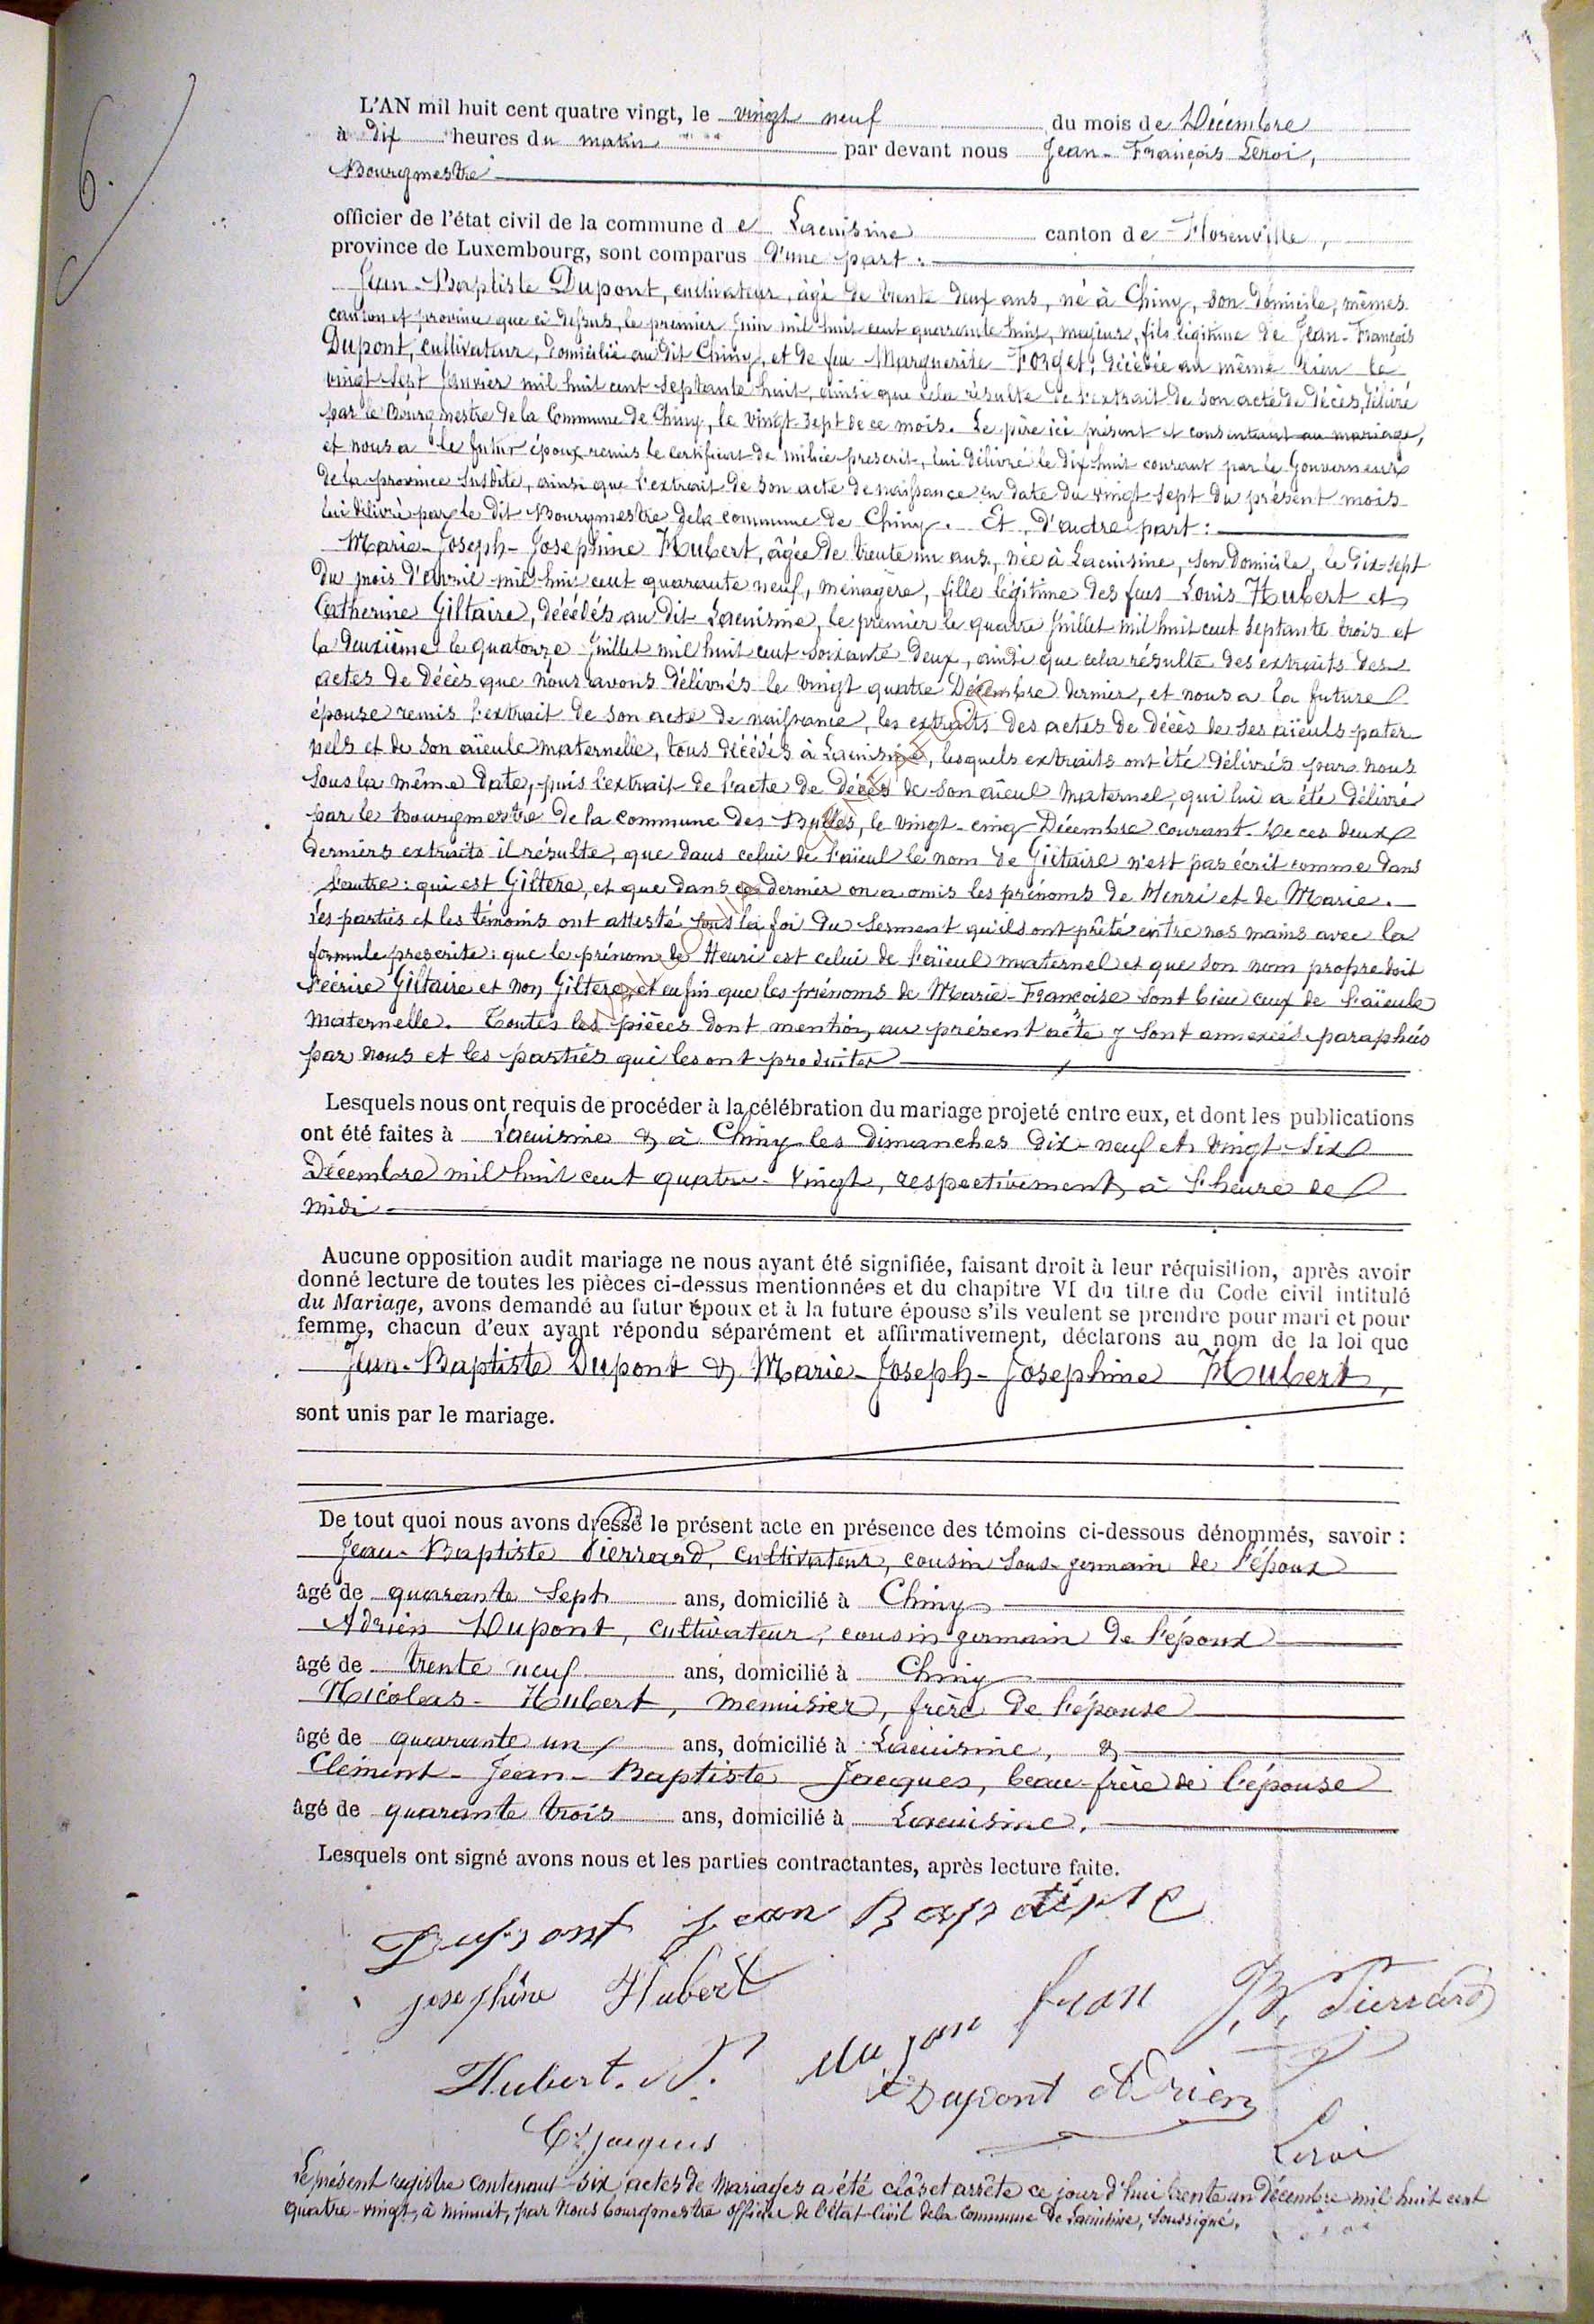 6.
L'AN mil huit cent quatre vingt, le vingt neuf du mois de Décembre
à dix heures du matin par devant nous Jean-François Leroi,
Bourgmestre
officier de l'état civil de la commune de Lacuisine canton de Florenville,
province de Luxembourg, sont comparus d'une part :
Jean-Baptiste Dupont, cultivateur, âgé de trente deux ans, né à Chiny, son domicile, mêmes
canton et province que ci dessus, le premier Juin mil huit cent quarante huit, majeur, fils légitime de Jean-François
Dupont, cultivateur, domicilié au dit Chiny, et de feu Marguerite Forget, décédée au même lieu le
vingt sept Janvier mil huit cent septante huit, ainsi que cela résulte de l'extrait de son acte de décès, délivré
par le Bourgmestre de la Commune de Chiny, le vingt-sept de ce mois. Le père ici présent et consentant au mariage,
et nous a le futur époux remis le certificat de milice prescrit, lui délivré le dix huit courant par le Gouverneur
de la province susdite, ainsi que l'extrait de son acte de naissance en date du vingt sept du présent mois
lui délivré par le dit Bourgmestre de la commune de Chiny. Et d'autre part :
Marie-Joseph-Josephine Hubert, âgée de trente un ans, née à Lacuisine, son domicile, le dix-sept
du mois d'avril mil huit cent quarante neuf, ménagère, fille légitime des feus Louis Hubert et
Catherine Giltaire, décédés au dit Lacuisine, le premier le quatre Juillet mil huit cent septante trois et
la deuxième le quatorze Juillet mil huit cent soixante deux, ainsi que cela résulte des extraits des
actes de décès que nous avons délivrés le vingt quatre Décembre dernier, et nous a la future
épouse remis l'extrait de son acte de naissance, les extraits des actes de décès de ses aïeuls pater
nels et de son aïeule maternelle, tous décédés à Lacuisine, lesquels extraits ont été délivrés par nous
sous la même date, puis l'extrait de l'acte de décès de son aïeul maternel, qui lui a été délivré
par le Bourgmestre de la commune des Bulles, le vingt-cinq Décembre courant. De ces deux
derniers extraits il résulte, que dans celui de l'aïeul le nom de Giltaire n'est pas écrit comme dans
l'autre : qui est Giltere, et que dans ce dernier on a omis les prénoms de Henri et de Marie.
Les parties et les témoins ont attesté sous la foi du serment qu'ils ont prêté entre nos mains avec la
formule prescrite : que le prénom de Henri est celui de l'aïeul maternel et que son nom propre doit
s'écrire Giltaire et non Giltere, et enfin que les prénoms de Marie-Françoise sont bien ceux de l'aïeule
maternelle. Toutes les pièces dont mention au présent acte y sont annexées paraphées
par nous et les parties qui les ont produites
Lesquels nous ont requis de procéder à la célébration du mariage projeté entre eux, et dont les publications
ont été faites à Lacuisine & à Chiny les dimanches dix-neuf et vingt-six
Décembre mil huit cent quatre-vingt, respectivement, à l'heure de
midi
Aucune opposition audit mariage ne nous ayant été signifiée, faisant droit à leur réquisition, après avoir
donné lecture de toutes les pièces ci-dessus mentionnées et du chapitre VI du titre du Code civil intitulé
du Mariage, avons demandé au futur époux et à la future épouse s'ils veulent se prendre pour mari et pour
femme, chacun d'eux ayant répondu séparément et affirmativement, déclarons au nom de la loi que
Jean-Baptiste Dupont & Marie-Joseph-Josephine Hubert,
sont unis par le mariage.
De tout quoi nous avons dressé le présent acte en présence des témoins ci-dessous dénommés, savoir :
Jean-Baptiste Pierrard, cultivateur, cousin sous-germain de l'époux
âgé de quarante sept ans, domicilié à Chiny
Adrien Dupont, cultivateur, cousin germain de l'époux
âgé de trente neuf ans, domicilié à Chiny
Nicolas Hubert, menuisier, frère de l'épouse
âgé de quarante un ans, domicilié à Lacuisine, &
Clément-Jean-Baptiste Jacques, beau-frère de l'épouse
âgé de quarante trois ans, domicilié à Lacuisine.
Lesquels ont signé avons nous et les parties contractantes, après lecture faite.
Dupont Jean Baptiste
josephine Hubert
J. B. Pierrard
Hubert. N.
Dupont Adrien
Ct Jacques
Leroi
Le présent registre contenant six actes de Mariages a été clos et arrêté ce jour d'hui trente un décembre mil huit cent
quatre-vingt, à minuit, par Nous bourgmestre officier de l'état-civil de la Commune de Lacuisine, soussigné.
Leroi